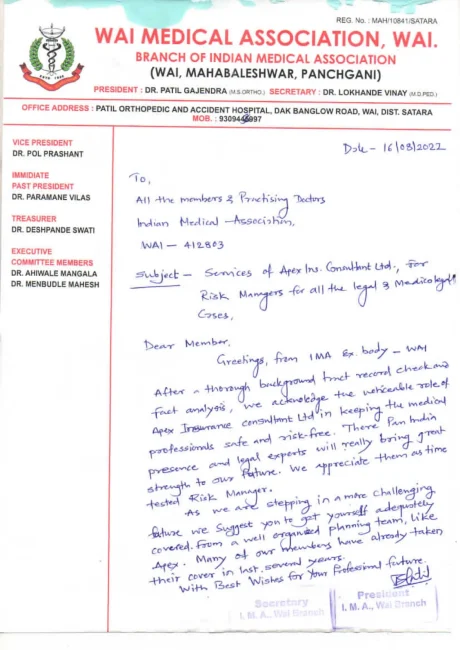 REG. No.: MAH/10841/SATARA
WAI MEDICAL ASSOCIATION, WAI.
BRANCH OF INDIAN MEDICAL ASSOCIATION
(WAI, MAHABALESHWAR, PANCHGANI)
PRESIDENT : DR. PATIL GAJENDRA (M.S.ORTHO.) SECRETARY : DR. LOKHANDE VINAY (M.D.PED.)
OFFICE ADDRESS : PATIL ORTHOPEDIC AND ACCIDENT HOSPITAL, DAK BANGLOW ROAD, WAI, DIST. SATARA
MOB. :
VICE PRESIDENT
DR. POL PRASHANT
IMMIDIATE
PAST PRESIDENT
DR. PARAMANE VILAS
TREASURER
DR. DESHPANDE SWATI
EXECUTIVE
COMMITTEE MEMBERS
DR. AHIWALE MANGALA
DR. MENBUDLE MAHESH
Date - 16/08/2022
To,
All the members & Practising Doctors
Indian Medical Association,
WAI - 412803
Subject - Services of Apex Ins. Consultant Ltd., for
Risk Managers for all the legal & Medicolegal
Cases,
Dear Member,
Greetings, from IMA Ex. body - WAI
After a thorough background tract record check and
fact analysis, we acknowledge the noticeable role of
Apex Insurance consultant Ltd in keeping the medical
professionals safe and risk-free. There Pan India
presence and legal experts will really bring great
strength to our future. We appreciate them as time
tested Risk Manager.
As we are stepping in a more challenging
future we suggest you to get yourself adequately
covered from a well organised planning team, like
Apex. Many of our members have already taken
their cover in last several years.
With Best Wishes for Your Professional future.
Secretary
I. M. A., Wai Branch
President
I. M. A., Wai Branch